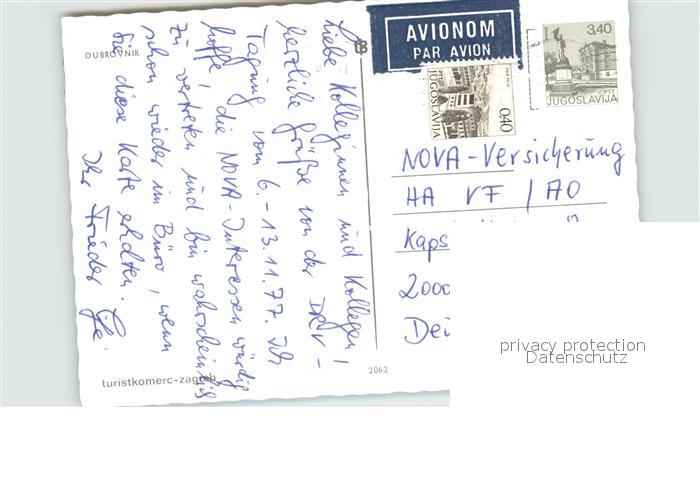 DUBROVNIK
Liebe Kolleginnen und Kollegen!
herzliche Grüße von der DRV-
Tagung vom 6.-13.11.77. Ich
hoffe, die NOVA-Interessen würdig
zu vertreten und bin wahrscheinlich
schon wieder im Büro, wenn
Sie diese Karte erhalten.
Ihr Frieder
turistkomerc-zagreb
2062
AVIONOM
PAR AVION
JUGOSLAVIJA
0,40
3,40
PTT
JUGOSLAVIJA
NOVA-Versicherung
HA VF / AO
Kaps
2000
Deu
privacy protection
Datenschutz